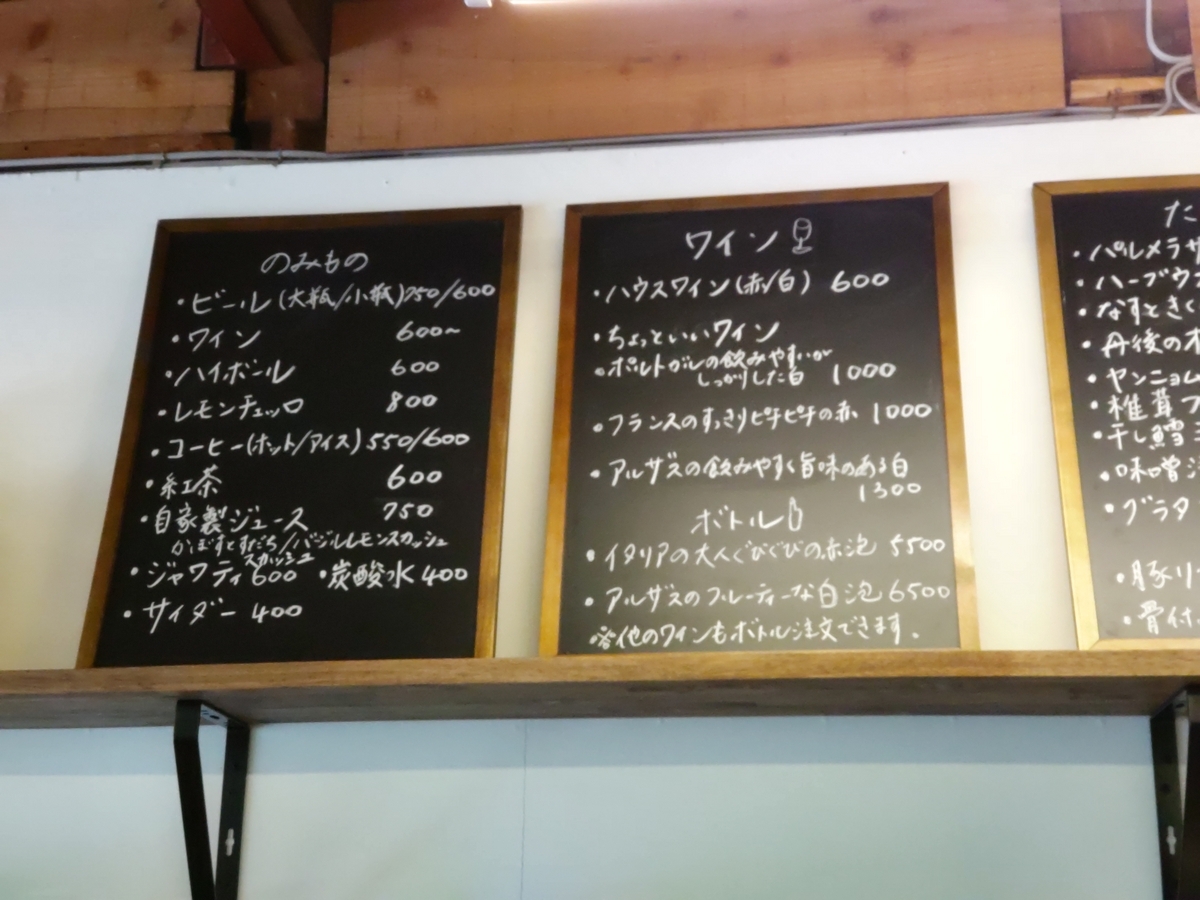 のみもの
・ビール(大瓶/小瓶)750/600
・ワイン 600~
・ハイボール 600
・レモンチェッロ 800
・コーヒー(ホット/アイス)550/600
・紅茶 600
・自家製ジュース 750
かぼすとすだちスカッシュ/バジルレモンスカッシュ
・ジャワティ 600 ・炭酸水 400
・サイダー 400
ワイン
・ハウスワイン(赤/白) 600
・ちょっといいワイン
・ポルトガルの飲みやすいが
しっかりした白 1000
・フランスのすっきりピチピチの赤 1000
・アルザスの飲みやすく旨味のある白
1300
ボトル
・イタリアの大人ぐびぐびの赤泡 5500
・アルザスのフルーティーな白泡 6500
※他のワインもボトル注文できます.
た
・パルメラザ
・ハーブウ
・なすときく
・丹後の
・ヤンニョム
・椎茸フ
・干し鱈
・味噌
・グラタ
・豚リ
・骨付